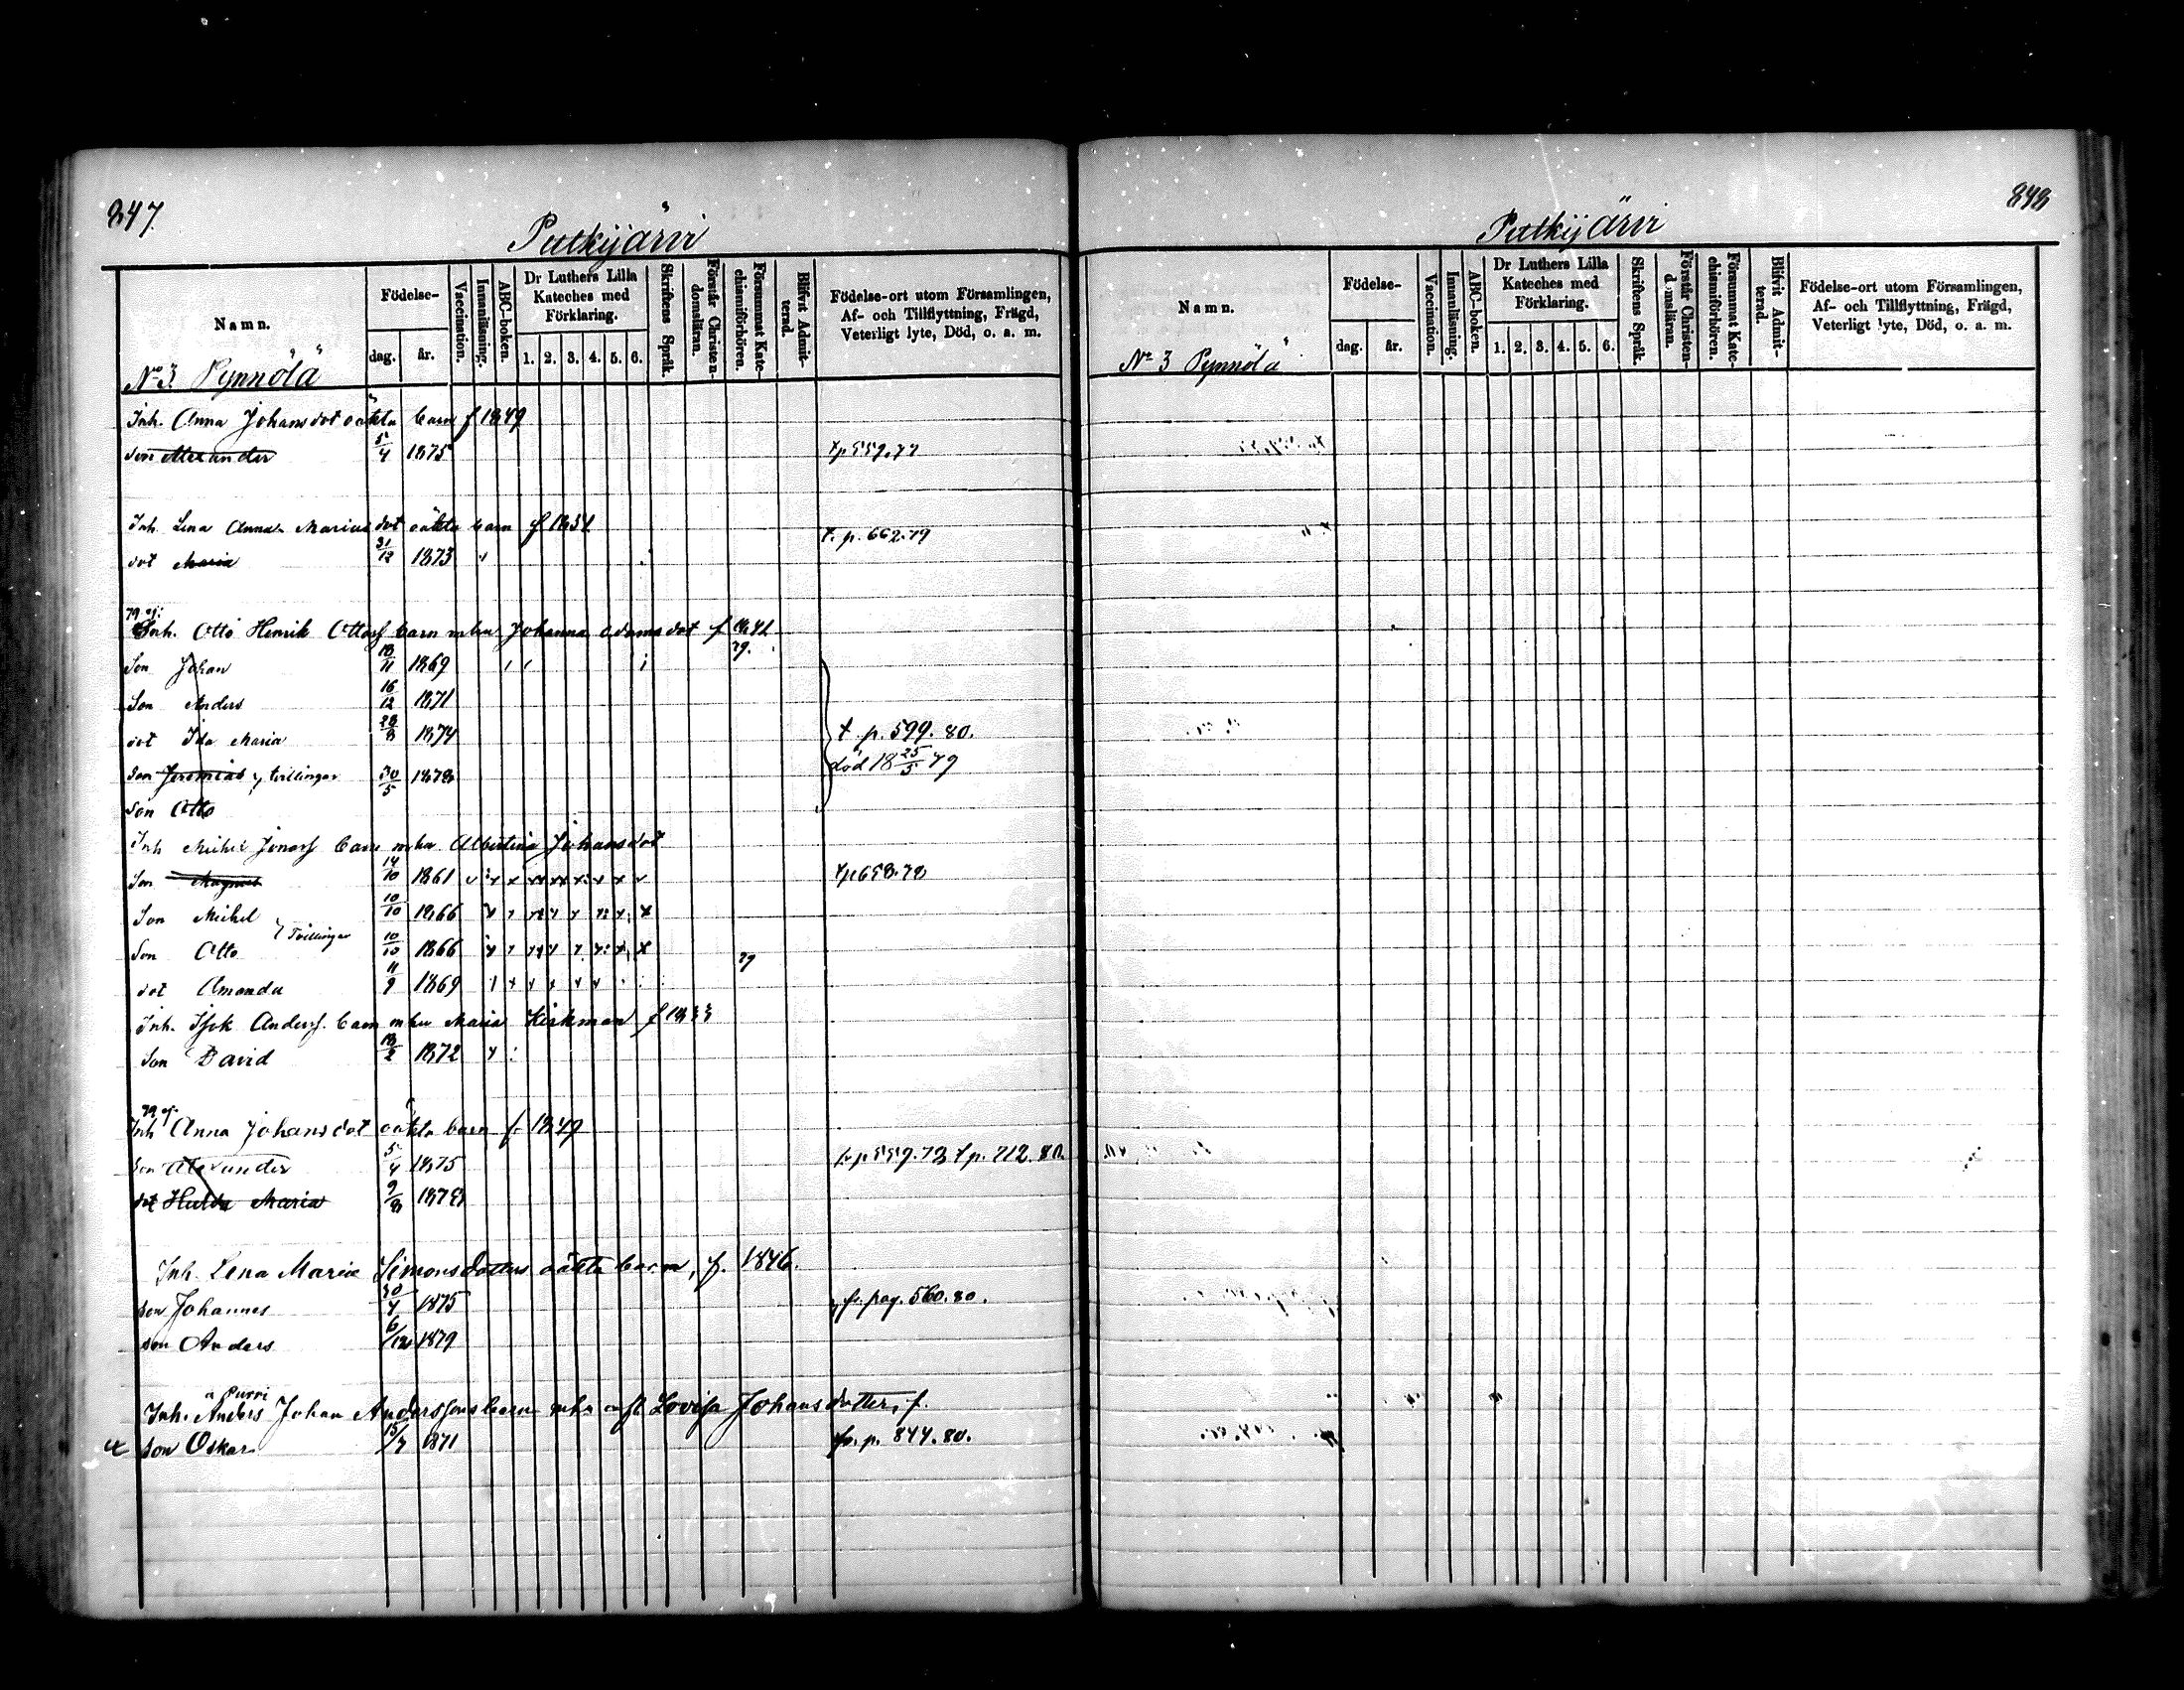 847.
Putkijärvi
Namn.
Födelse-
dag.
år.
Vaccination.
Innanläsning.
ABC-boken.
Dr Luthers Lilla Kateches med Förklaring.
1. 2. 3. 4. 5. 6.
Skriftens Språk.
Förstår Christendomsläran.
Försummat Katechismiförhören.
Blifvit Admitterad.
Födelse-ort utom Församlingen, Af- och Tillflyttning, Frägd, Veterligt lyte, Död, o. a. m.
No 3 Pynnölä
Inh. Anna Johansdot oäkta barn f 1849
son Alexander 5/4 1875 tp 559.77
Inh. Lena Anna Mariasdot oäkta barn f 1851
dot Maria 31/12 1873 t. p. 662.79
Inh. Otto Henrik Ottass barn m hu Johanna Adamsdot f 1841
Son Johan 18/11 1869 79.
Son Anders 16/12 1871
dot Ida Maria 28/8 1874 t. p. 599. 80.
Son Jeremias tvillingar 30/5 1878 död 18 25/5 79
Son Otto
Inh Michel barn m hu Albertina Johansdot
Son Magnus 14/10 1861 tp 658.78
Son Michel 10/10 1866
Tvillingar
Son Otto 10/10 1866
dot Amanda 11/9 1869 79
Inh. Isak Anderss. barn m hu Maria Kirkman f 1833
Son David 18/2 1872
Inh Anna Johansdot oäkta barn f. 1849
Son Alexander 5/4 1875 fr p 559.78 tp. 712. 80.
dot Hulda Maria 9/8 1878
Inh. Lena Maria Simonsdotters oäkta barn, f. 1846.
son Johannes 30/4 1875 fr. pag. 560. 80.
son Anders 6/12 1879
Purri
Inh. Anders Johan Anderssons barn m h Lovisa Johansdotter, f.
son Oskar 15/7 1871 fr. p. 844. 80.
848
Putkijärvi
Namn.
Födelse-
dag.
år.
Vaccination.
Innanläsning.
ABC-boken.
Dr Luthers Lilla Kateches med Förklaring.
1. 2. 3. 4. 5. 6.
Skriftens Språk.
Förstår Christendomsläran.
Försummat Katechismiförhören.
Blifvit Admitterad.
Födelse-ort utom Församlingen, Af- och Tillflyttning, Frägd, Veterligt lyte, Död, o. a. m.
No 3 Pynnölä